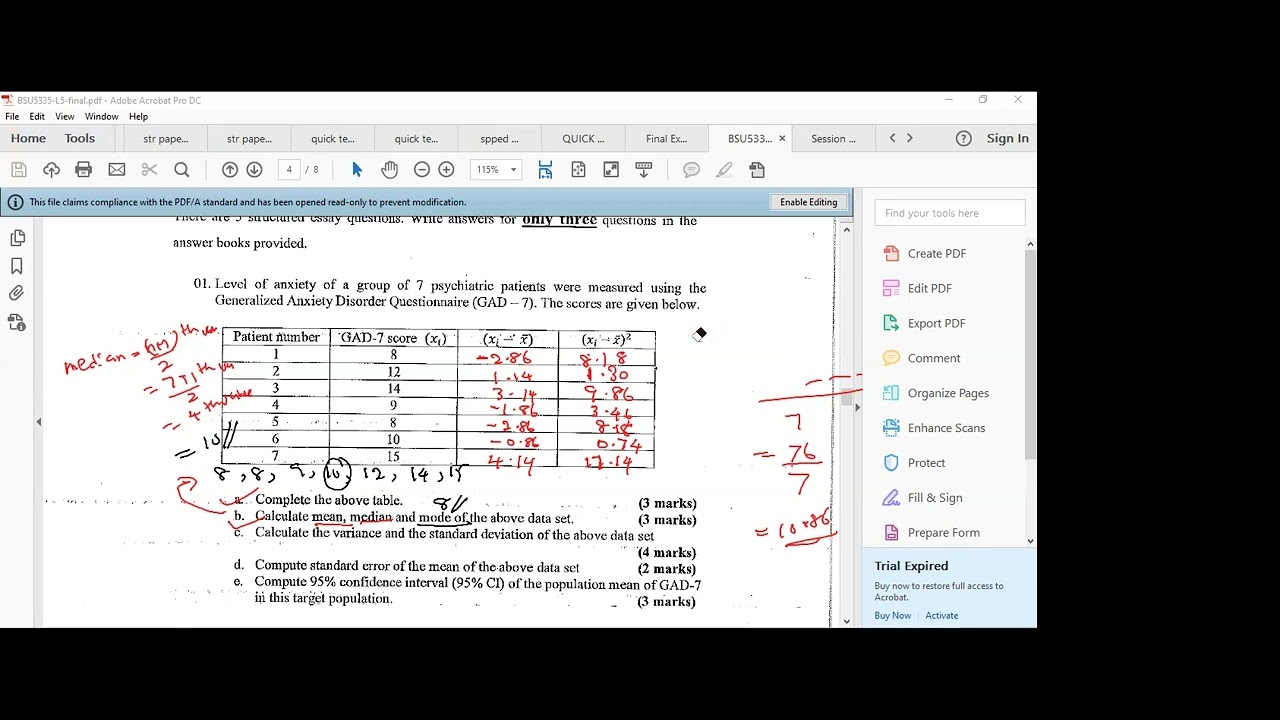 BSU5335-L5-final.pdf - Adobe Acrobat Pro DC
File Edit View Window Help
Home Tools str pape... str pape... quick te... quick te... spped ... QUICK ... Final Ex... BSU533... × Session ... Sign In
4 / 8 115%
This file claims compliance with the PDF/A standard and has been opened read-only to prevent modification. Enable Editing
There are 5 structured essay questions. Write answers for only three questions in the
answer books provided.
01. Level of anxiety of a group of 7 psychiatric patients were measured using the
Generalized Anxiety Disorder Questionnaire (GAD – 7). The scores are given below.
Patient number GAD-7 score (xᵢ) (xᵢ – x̄) (xᵢ – x̄)²
1 8 -2.86 8.18
2 12 1.14 1.30
3 14 3.14 9.86
4 9 -1.86 3.46
5 8 -2.86 8.18
6 10 -0.86 0.74
7 15 4.14 17.14
median = (n+1)th
2
= 7+1th
2
= 4th value
= 10//
8, 8, 9, 10, 12, 14, 15
a. Complete the above table. (3 marks)
8//
b. Calculate mean, median and mode of the above data set. (3 marks)
c. Calculate the variance and the standard deviation of the above data set
(4 marks)
d. Compute standard error of the mean of the above data set (2 marks)
e. Compute 95% confidence interval (95% CI) of the population mean of GAD-7
in this target population. (3 marks)
7
= 76
7
= 10.86
Find your tools here
Create PDF
Edit PDF
Export PDF
Comment
Organize Pages
Enhance Scans
Protect
Fill & Sign
Prepare Form
Trial Expired
Buy Now to restore full access to
Acrobat.
Buy Now Activate